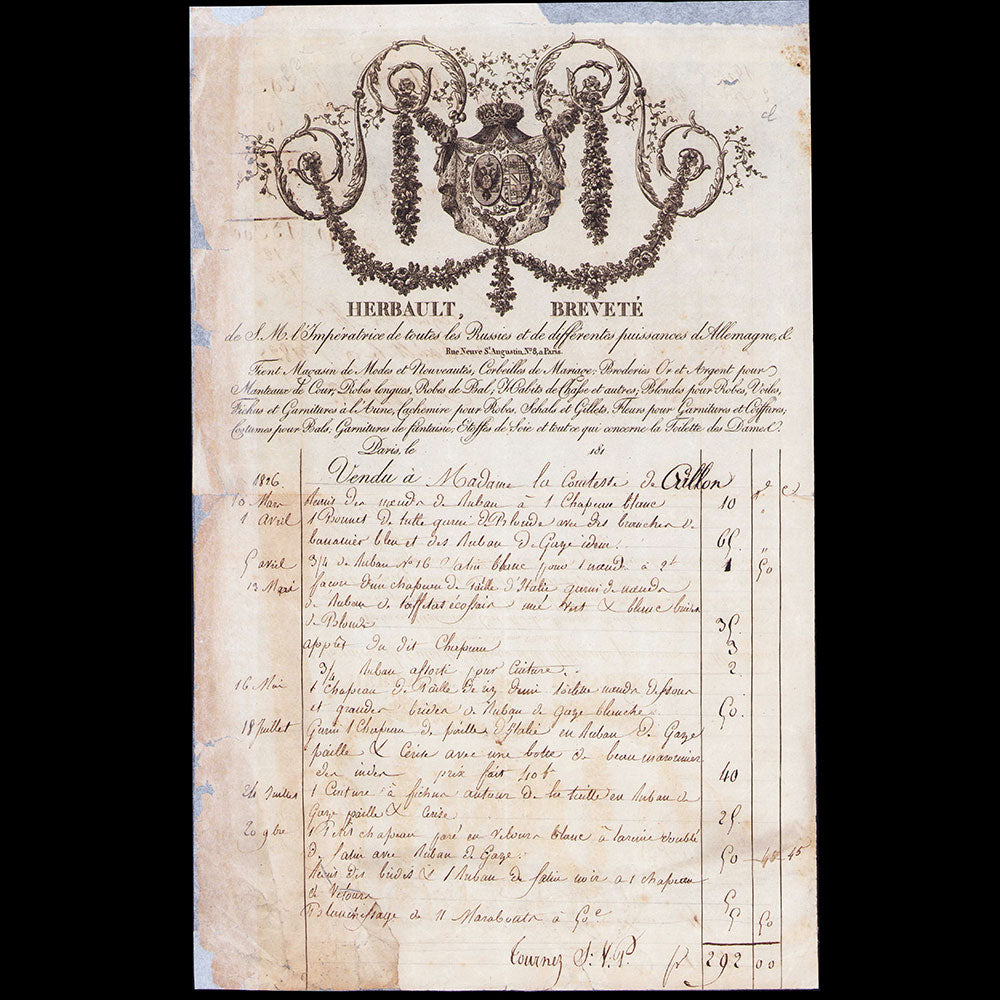 HERBAULT, BREVETÉ
de S. M. l'Impératrice de toutes les Russies et de différentes puissances d'Allemagne, &
Rue Neuve St. Augustin, No. 8, à Paris.
Tient Magasin de Modes et Nouveautés, Corbeilles de Mariage, Broderies Or et Argent pour
Manteaux de Cour, Robes longues, Robes de Bal, Habits de Chasse et autres; Blondes pour Robes, Voiles,
Fichus et Garnitures à l'Aune, Cachemire pour Robes, Schals et Gillets, Fleurs pour Garnitures et Coiffures;
Costumes pour Bals, Garnitures de fantaisie, Etoffes de Soie et tout ce qui concerne la Toilette des Dames.
Paris, le 181
1826. Vendu à Madame la Comtesse de Crillon fr c
10 Mars Remis des nœuds de Ruban à 1 Chapeau blanc 10 "
1 Avril 1 Bonnet de tulle garni d'Blonde avec des branches de
bananier bleu et des Ruban de Gaze idem. 65. "
5 avril 3/4 de Ruban No 16 Satin blanc pour 1 nœud à 2f 1 50
13 Mai façon d'un chapeau de Paille d'Italie garni de nœuds
de Ruban de taffetas écossais vert & blanc brides
de Blonde 35.
apprêt du dit Chapeau 3
3/4 Ruban assorti pour Ceinture. 2
16 Mai 1 Chapeau de Paille de riz demi toilette nœuds dessous
et grandes brides de Ruban de gaze blanche. 50.
18 Juillet Garni 1 Chapeau de paille d'Italie en Ruban de Gaze
paille & Cerise avec une botte de beau maronnier
des indes prix fait 40f 40
24 Juillet 1 Ceinture à fichu autour de la taille en Ruban de
Gaze paille & Cerise 25.
20 9bre 1 Petit chapeau paré en velours blanc doublé
de Satin avec Ruban de Gaze. 50 48 45
Remis des brides & 1 Ruban de Satin noir à 1 chapeau
de Velours 5
Blanchissage de 11 Marabouts à 50c 5 50
Tournez S. V. P. fr 292 00